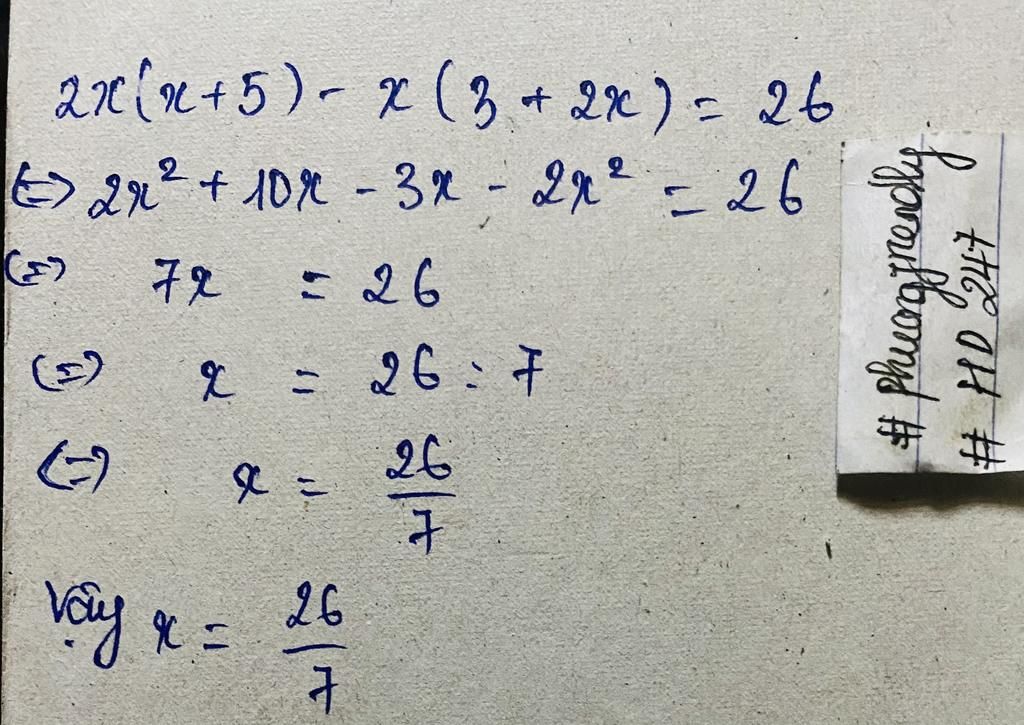 2x(x+5) - x(3 + 2x) = 26
(=) 2x² + 10x - 3x - 2x² = 26
(=) 7x = 26
(=) x = 26 : 7
(=) x = 26/7
Vậy x = 26/7
# phuongjnendhy
# HD 247